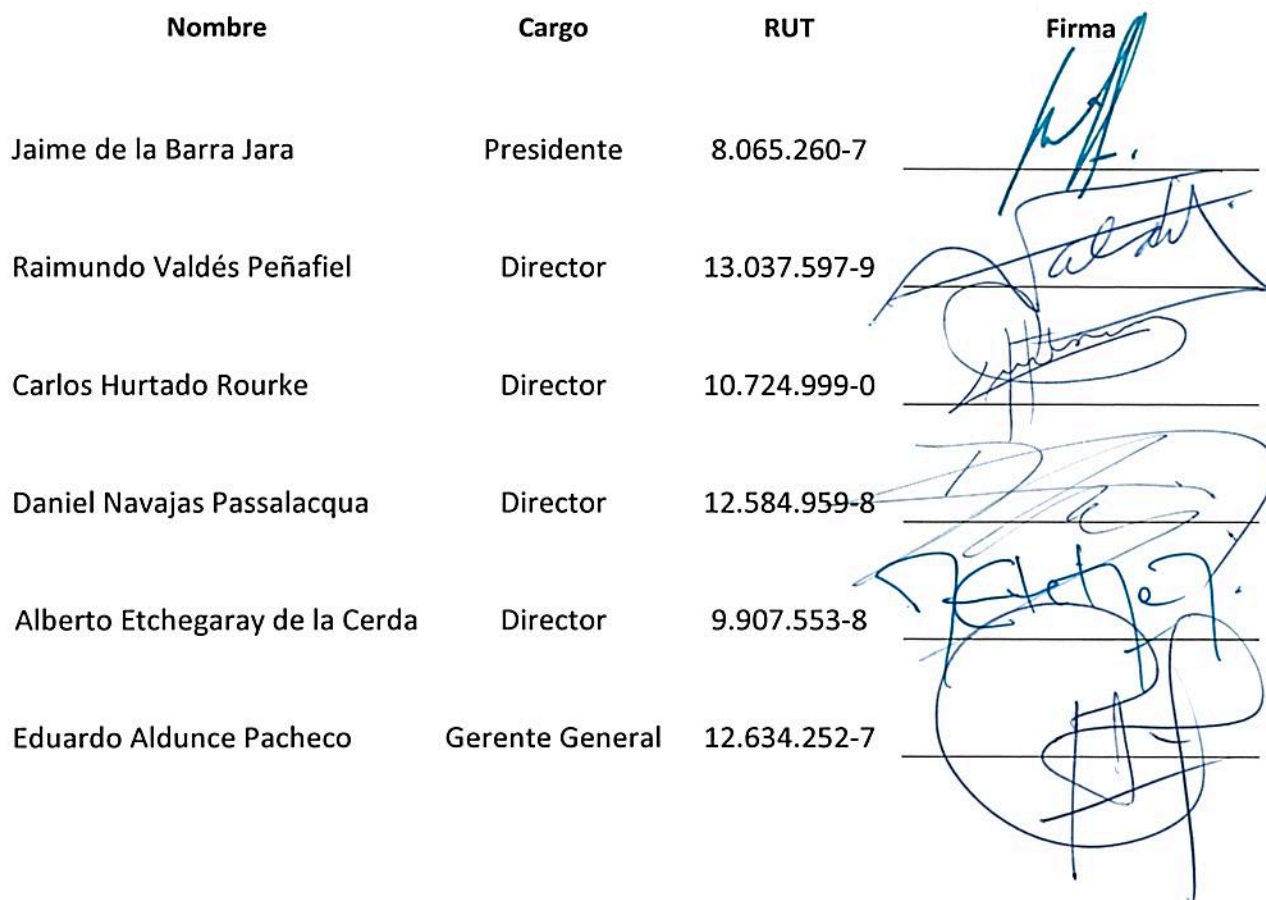 Nombre Cargo RUT Firma
Jaime de la Barra Jara Presidente 8.065.260-7
Raimundo Valdés Peñafiel Director 13.037.597-9
Carlos Hurtado Rourke Director 10.724.999-0
Daniel Navajas Passalacqua Director 12.584.959-8
Alberto Etchegaray de la Cerda Director 9.907.553-8
Eduardo Aldunce Pacheco Gerente General 12.634.252-7